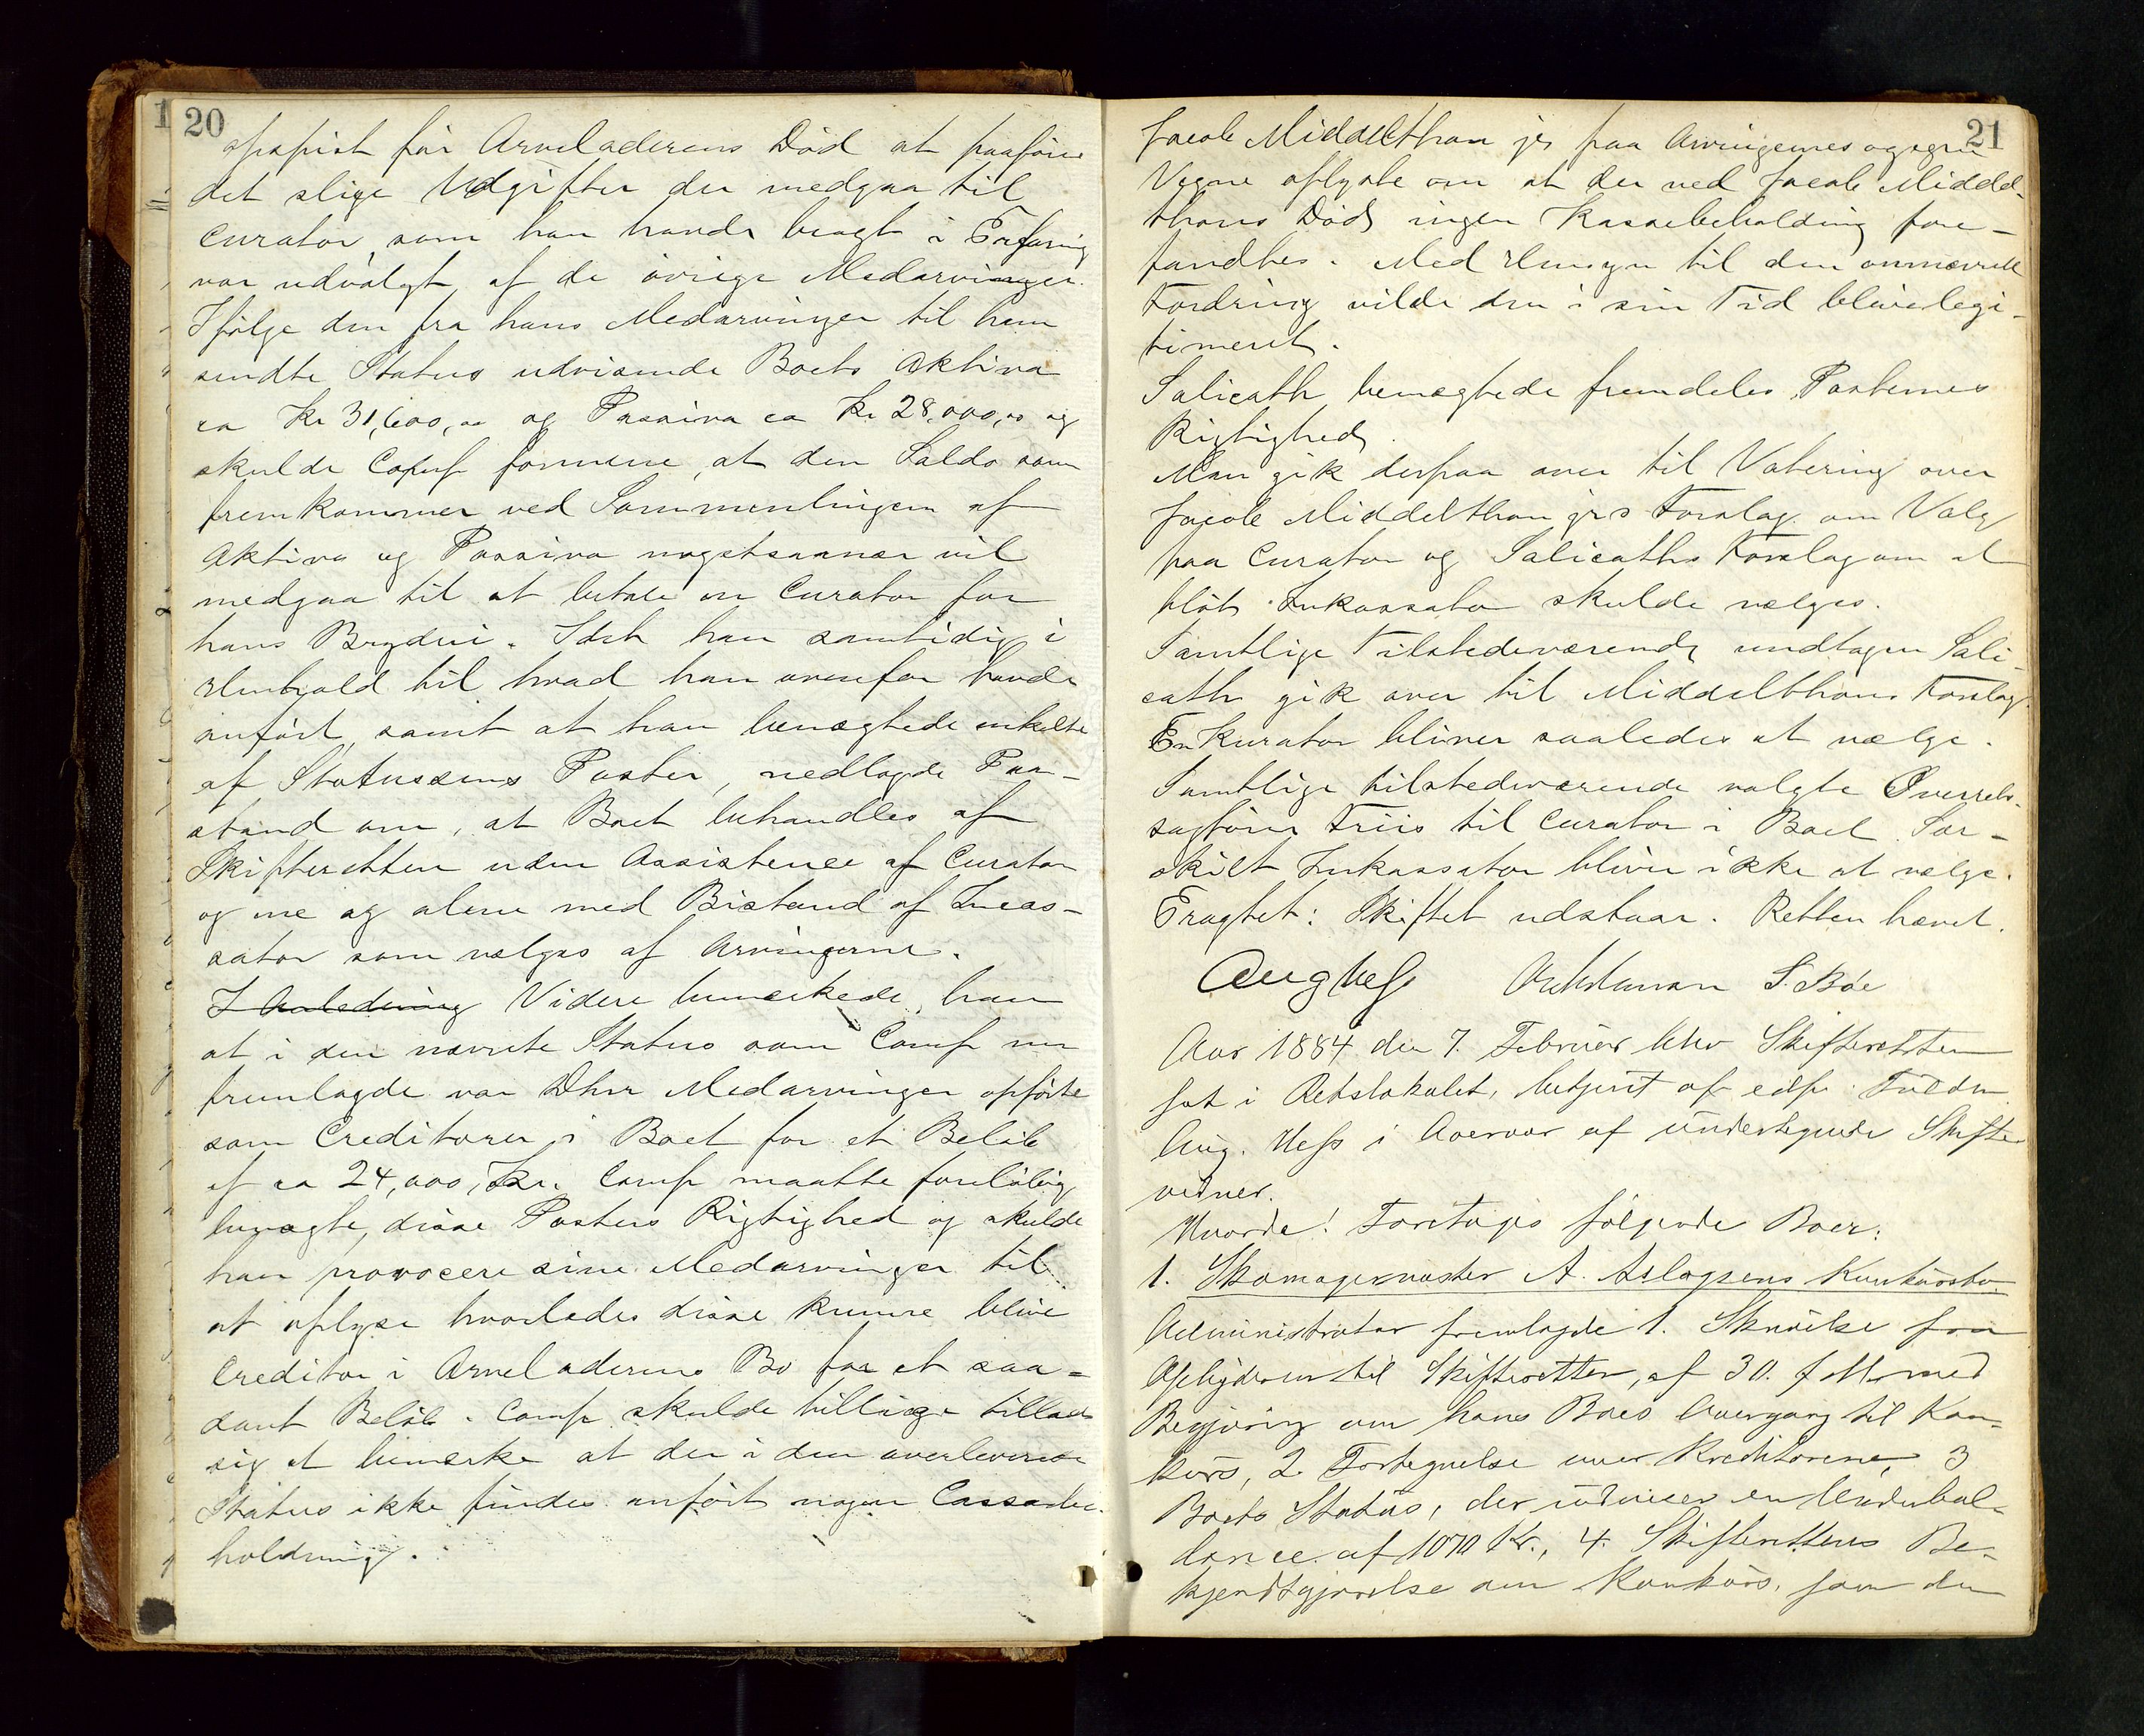 20
opspist før Arveladerens Død at paaføre
det slige Udgifter der medgaa til
Curator, som han havde bragt i Erfaring
var udvalgt af de øvrige Medarvinger.
Ifølge den fra hans Medarvinger til ham
sendte Status udvisende Boets Aktiva
ca Kr 31,600,00 og Passiva ca Kr 28,000,00 og
skulde Comp formene, at den Saldo som
fremkommer ved Sammenligningen af
Aktiva og Passiva nogetsaanær vil
medgaa til at betale en Curator for
hans Bryderi. Idet han samtidig i
Henhold til hvad han ovenfor havde
anført, samt at han benægtede enkelte
af Statussens Poster, nedlagde Paa-
stand om, at Boet behandles af
Skifteretten uden Assistence af Curator
og ene og alene med Bistand af Incas-
sator som vælges af Arvingerne.
I Anledning Videre bemærkede han
at i den nævnte Status som Comp nu
fremlagde var Dhrr Medarvinger opførte
som Creditorer i Boet for et Beløb
af ca 24,000, Kr. Comp maatte foreløbig
benægte, disse Posters Rigtighed og skulde
han provocere sine Medarvinger til
at oplyse hvorledes disse kunne blive
Creditor i Arveladerens Bo for et saa-
dant Beløb. Comp skulde tillige tillade
sig at bemærke at der i den overleverede
Status ikke findes anført nogen Cassabe-
holdning.
21
Jacob Middelthon jr paa Arvingernes og egne
Vegne oplyste om at der ved Jacob Middel-
thons Død ingen Kassebeholdning fore-
fandtes. Med Hensyn til den omnævnte
Fordring vilde den i sin Tid blive legi-
timeret.
Salicath benægtede fremdeles Posternes
Rigtighed.
Man gik derpaa over til Votering over
Jacob Middelthon jrs Forslag om Valg
paa Curator og Salicaths Forslag om at
blot Inkassator skulde vælges.
Samtlige Tilstedeværende undtagen Sali-
cath gik over til Middelthons Forslag.
En Kurator bliver saaledes at vælge.
Samtlige tilstedeværende valgte Overrets-
sagfører Friis til Curator i Boet. Sær-
skilt Inkassator bliver ikke at vælge.
Eragtet: Skiftet udstaar. Retten hævet.
Aug Hess S. Bøe
Aar 1884 den 7. Februar blev Skifteretten
sat i Retslokalet, betjent af edsv. Fuldm.
Aug. Hess i Overvær af undertegnede Skifte-
vidner.
Hvorda! Foretoges følgende Boer:
1. Skomagermester A. Aslagsens Konkursbo.
Administrator fremlagde 1. Skrivelse fra
til Skifteretten, af 30. f. M. med
Begjæring om hans Boes Overgang til Kon-
kurs, 2. Fortegnelse over Kreditorerne, 3
Boets Status, der udviser en Underbal-
lance af 1070 Kr., 4. Skifterettens Be-
kjendtgjørelse om Konkurs, som den